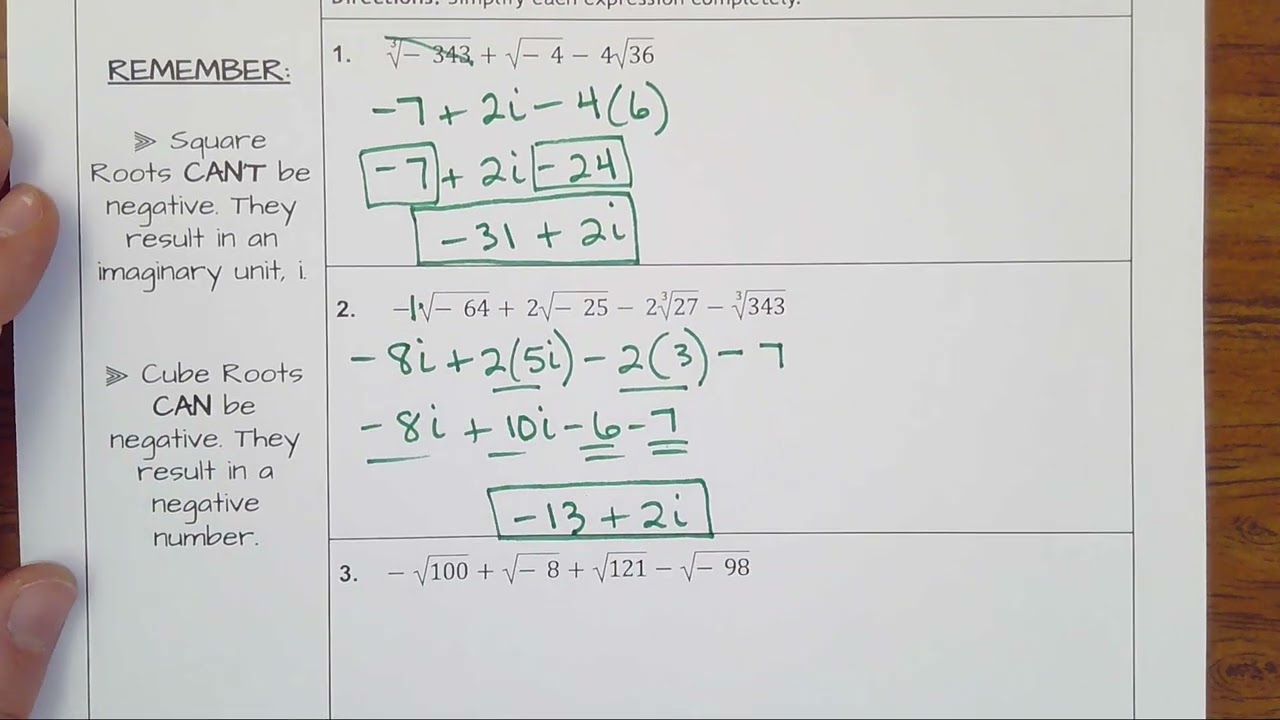 Directions: Simplify each expression completely.
REMEMBER:
⫸ Square
Roots CAN'T be
negative. They
result in an
imaginary unit, i.
⫸ Cube Roots
CAN be
negative. They
result in a
negative
number.
1. ∛− 343 + √− 4 − 4√36
−7 + 2i − 4(6)
−7 + 2i − 24
−31 + 2i
2. −1√− 64 + 2√− 25 − 2∛27 − ∛343
− 8i + 2(5i) − 2(3) − 7
− 8i + 10i − 6 − 7
−13 + 2i
3. − √100 + √− 8 + √121 − √− 98